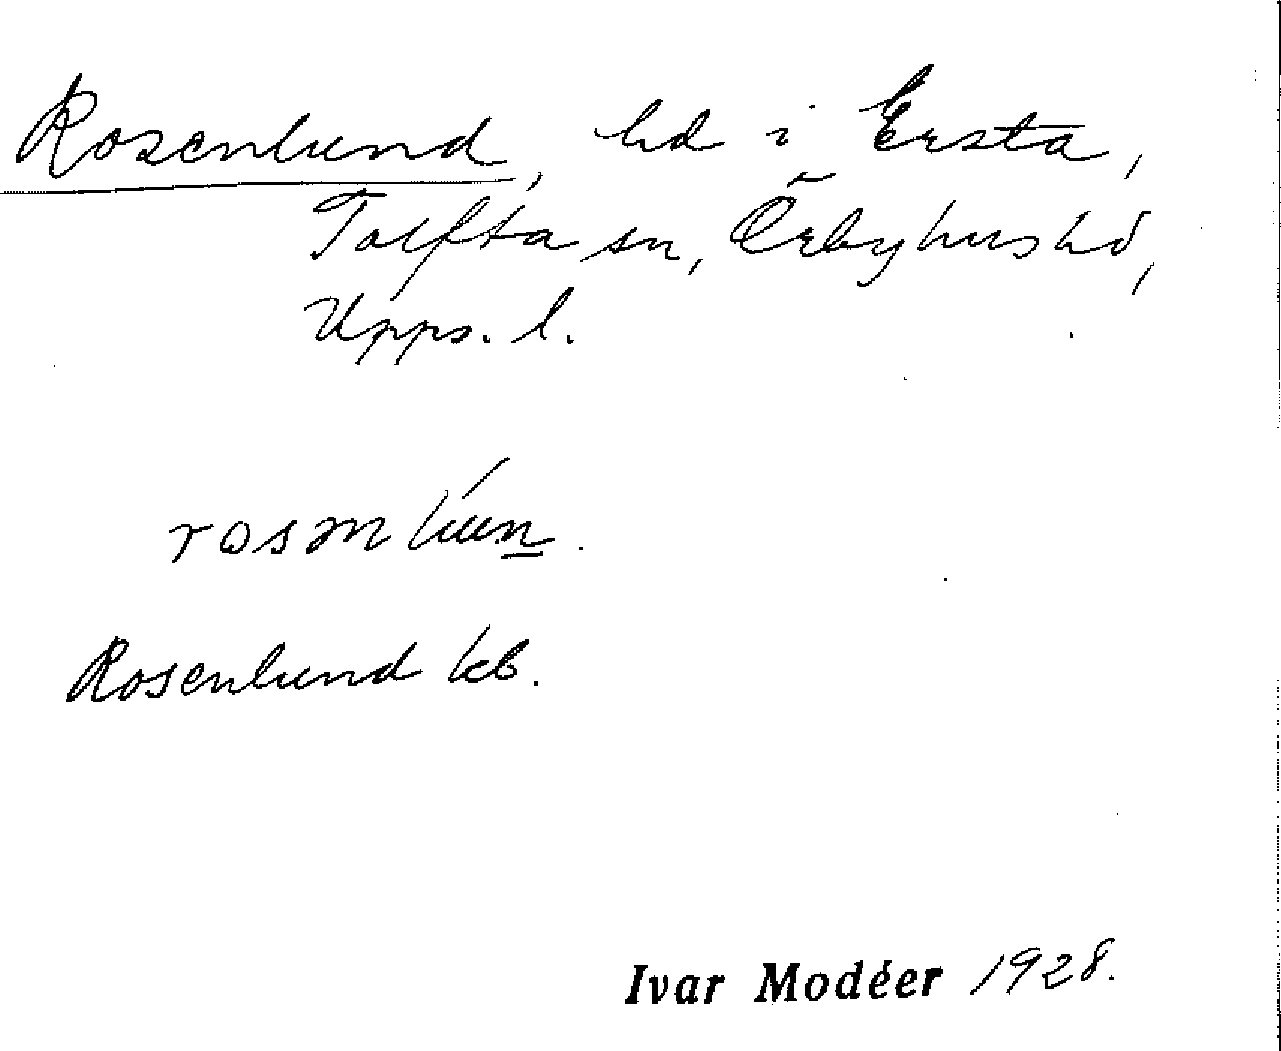 Rosenlund, hd i Ersta,
Tolfta sn, Örbyhus hd,
Upps. l.
rosm lun.
Rosenlund kb.
Ivar Modéer 1928.